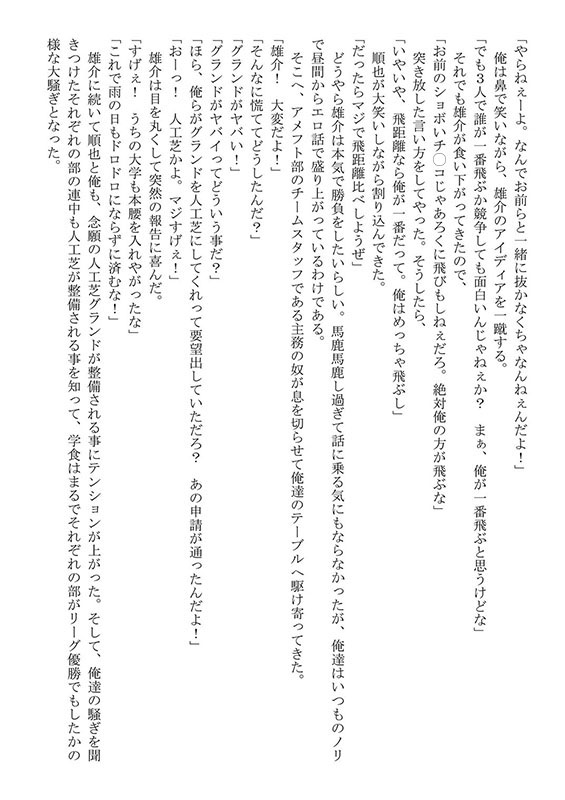 「やらねぇーよ。なんでお前らと一緒に抜かなくちゃなんねぇんだよ！」
俺は鼻で笑いながら、雄介のアイディアを一蹴する。
「でも３人で誰が一番飛ぶか競争しても面白いんじゃねぇか？　まぁ、俺が一番飛ぶと思うけどな」
それでも雄介が食い下がってきたので、
「お前のショボいチ〇コじゃあろくに飛びもしねぇだろ。絶対俺の方が飛ぶな」
突き放した言い方をしてやった。そうしたら、
「いやいや、飛距離なら俺が一番だって。俺はめっちゃ飛ぶし」
順也が大笑いしながら割り込んできた。
「だったらマジで飛距離比べしようぜ」
どうやら雄介は本気で勝負をしたいらしい。馬鹿馬鹿し過ぎて話に乗る気にもならなかったが、俺達はいつものノリ
で昼間からエロ話で盛り上がっているわけである。
そこへ、アメフト部のチームスタッフである主務の奴が息を切らせて俺達のテーブルへ駆け寄ってきた。
「雄介！　大変だよ！」
「そんなに慌ててどうしたんだ？」
「グランドがヤバい！」
「グランドがヤバイってどういう事だ？」
「ほら、俺らがグランドを人工芝にしてくれって要望出していただろ？　あの申請が通ったんだよ！」
「おーっ！　人工芝かよ。マジすげぇ！」
雄介は目を丸くして突然の報告に喜んだ。
「すげぇ！　うちの大学も本腰を入れやがったな」
「これで雨の日もドロドロにならずに済むな！」
雄介に続いて順也と俺も、念願の人工芝グランドが整備される事にテンションが上がった。そして、俺達の騒ぎを聞
きつけたそれぞれの部の連中も人工芝が整備される事を知って、学食はまるでそれぞれの部がリーグ優勝でもしたかの
様な大騒ぎとなった。